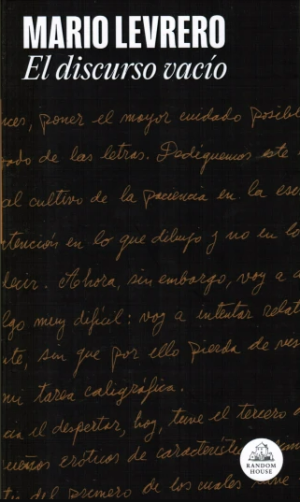 MARIO LEVRERO
El discurso vacío
nces, poner el mayor cuidado posibl
zado de las letras. Dediquemos este
al cultivo de la paciencia en la esc
atención en lo que dibujo y no en lo
decir. Ahora, sin embargo, voy a a
lgo muy difícil: voy a intentar relat
te, sin que por ello pierda de vis
mi tarea caligráfica.
cia el despertar, hoy, tuve el tercero
sueños eróticos de característic
del primero de los cuales tuve
RANDOM
HOUSE